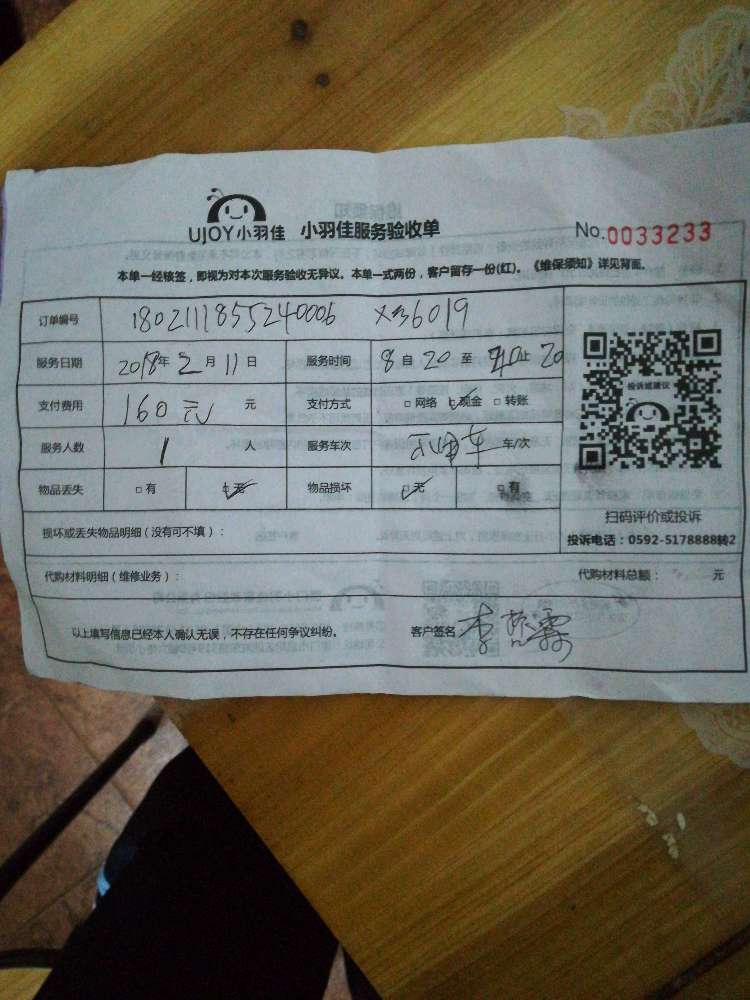 UJOY小羽佳 小羽佳服务验收单 No.0033233
本单一经核签，即视为对本次服务验收无异议。本单一式两份，客户留存一份(红)。《维保须知》详见背面。
订单编号 1802111855240006 X36019
服务日期 2018年2月11日 服务时间 8自20至 止20
支付费用 160元 元 支付方式 □网络 □现金 □转账
服务人数 1 人 服务车次 车/次
物品丢失 □有 □无 物品损坏 □无 □有
投诉或建议
扫码评价或投诉
投诉电话：0592-5178888转2
损坏或丢失物品明细（没有可不填）：
代购材料明细（维修业务）： 代购材料总额： 元
以上填写信息已经本人确认无误，不存在任何争议纠纷。 客户签名 李哲霖